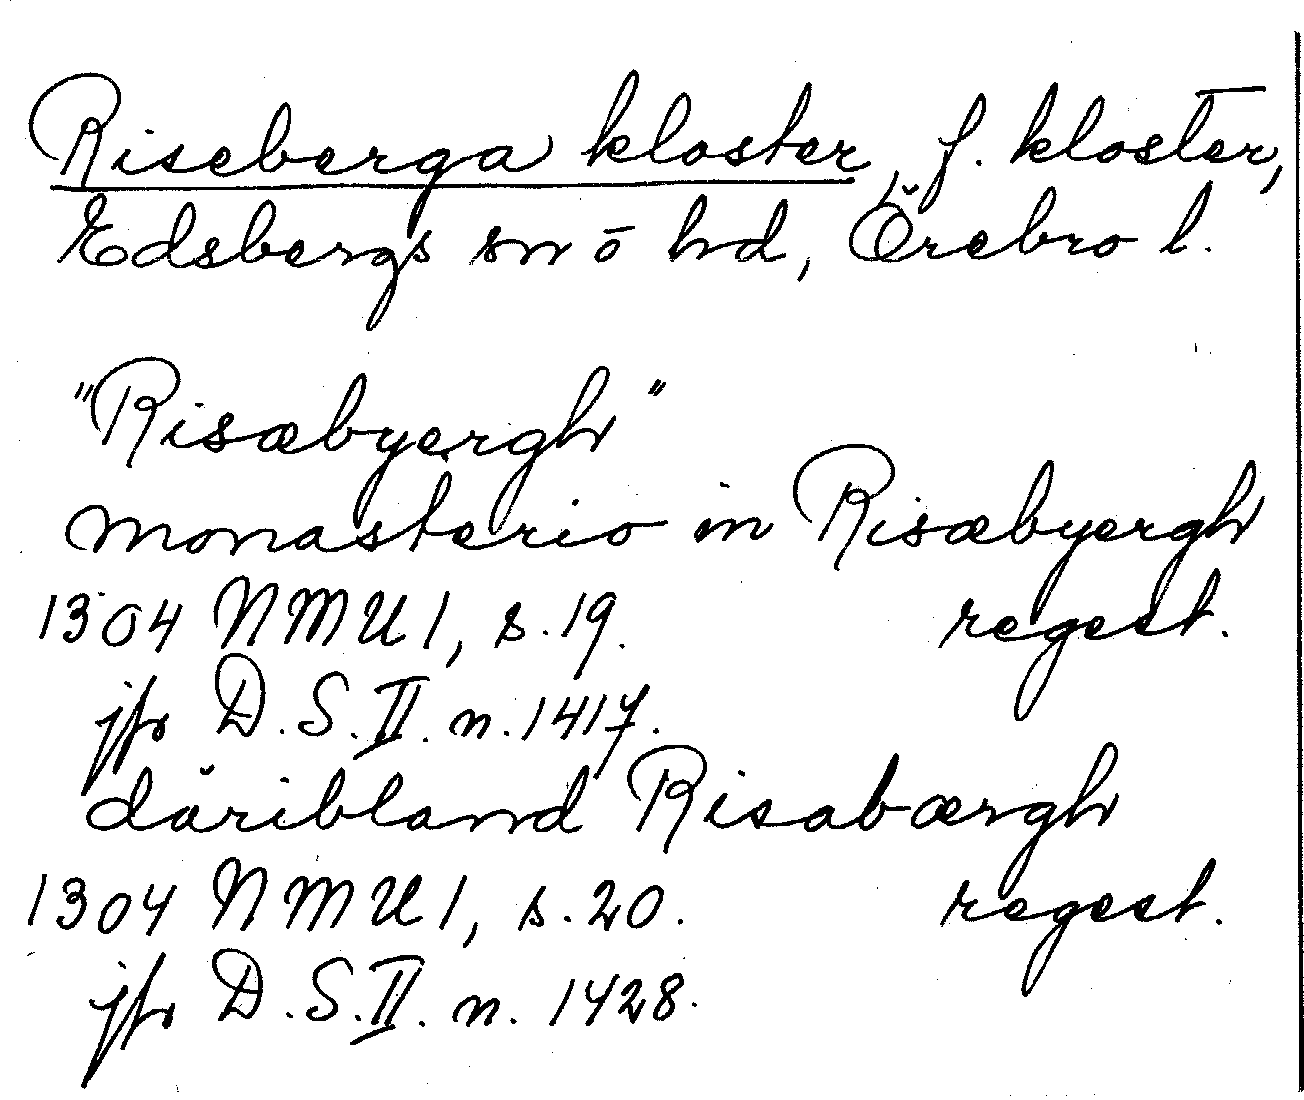 Riseberga kloster, f. kloster,
Edsbergs sn o hd, Örebro l.
"Risæbyergh"
monasterio in Risæbyergh
1304 NMU 1, s. 19. regest.
jfr D.S. II. n. 1417.
däribland Risabærgh
1304 NMU 1, s. 20. regest.
jfr D.S. II. n. 1428.